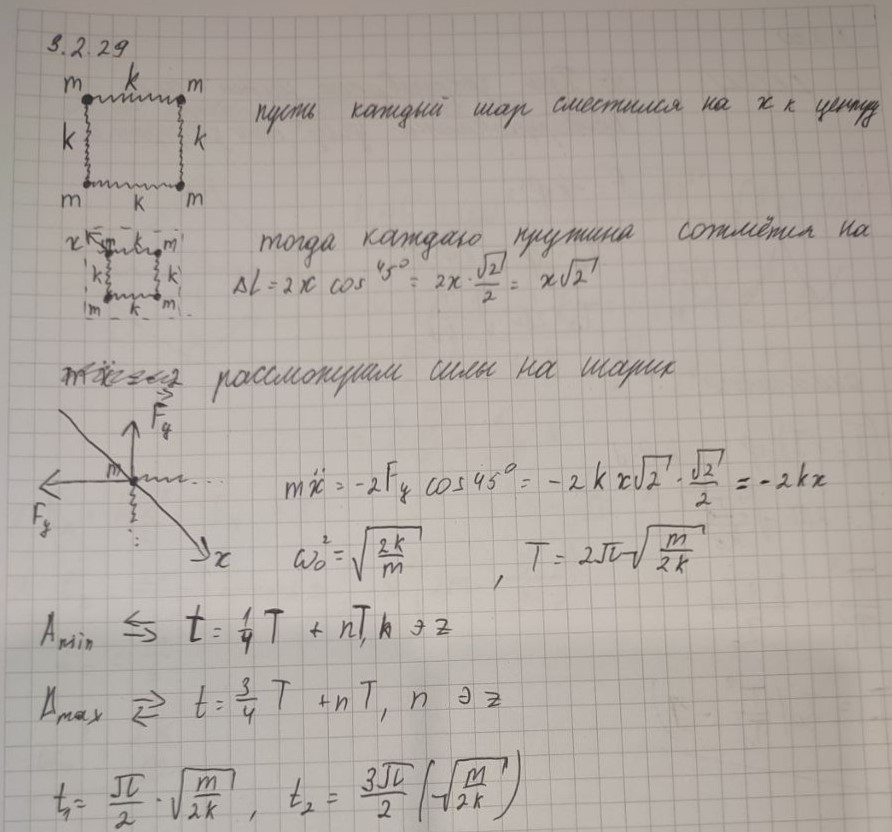 3.2.29
m k m
k k
m k m
пусть каждый шар сместился на x к центру
x k m
k k
m k m
тогда каждаю пружина сожмётся на
ΔL = 2x cos 45° = 2x · √2/2 = x√2
рассмотрим силы на шарик
F⃗y
m
Fy
x
mẍ = -2Fy cos 45° = -2 k x√2 · √2/2 = -2kx
ω₀² = √(2k/m) , T = 2π√(m/2k)
Amin ⇆ t = 1/4 T + nT, k ∋ z
Amax ⇄ t = 3/4 T + nT, n ∋ z
t₁ = π/2 · √(m/2k) , t₂ = 3π/2 (√(m/2k))